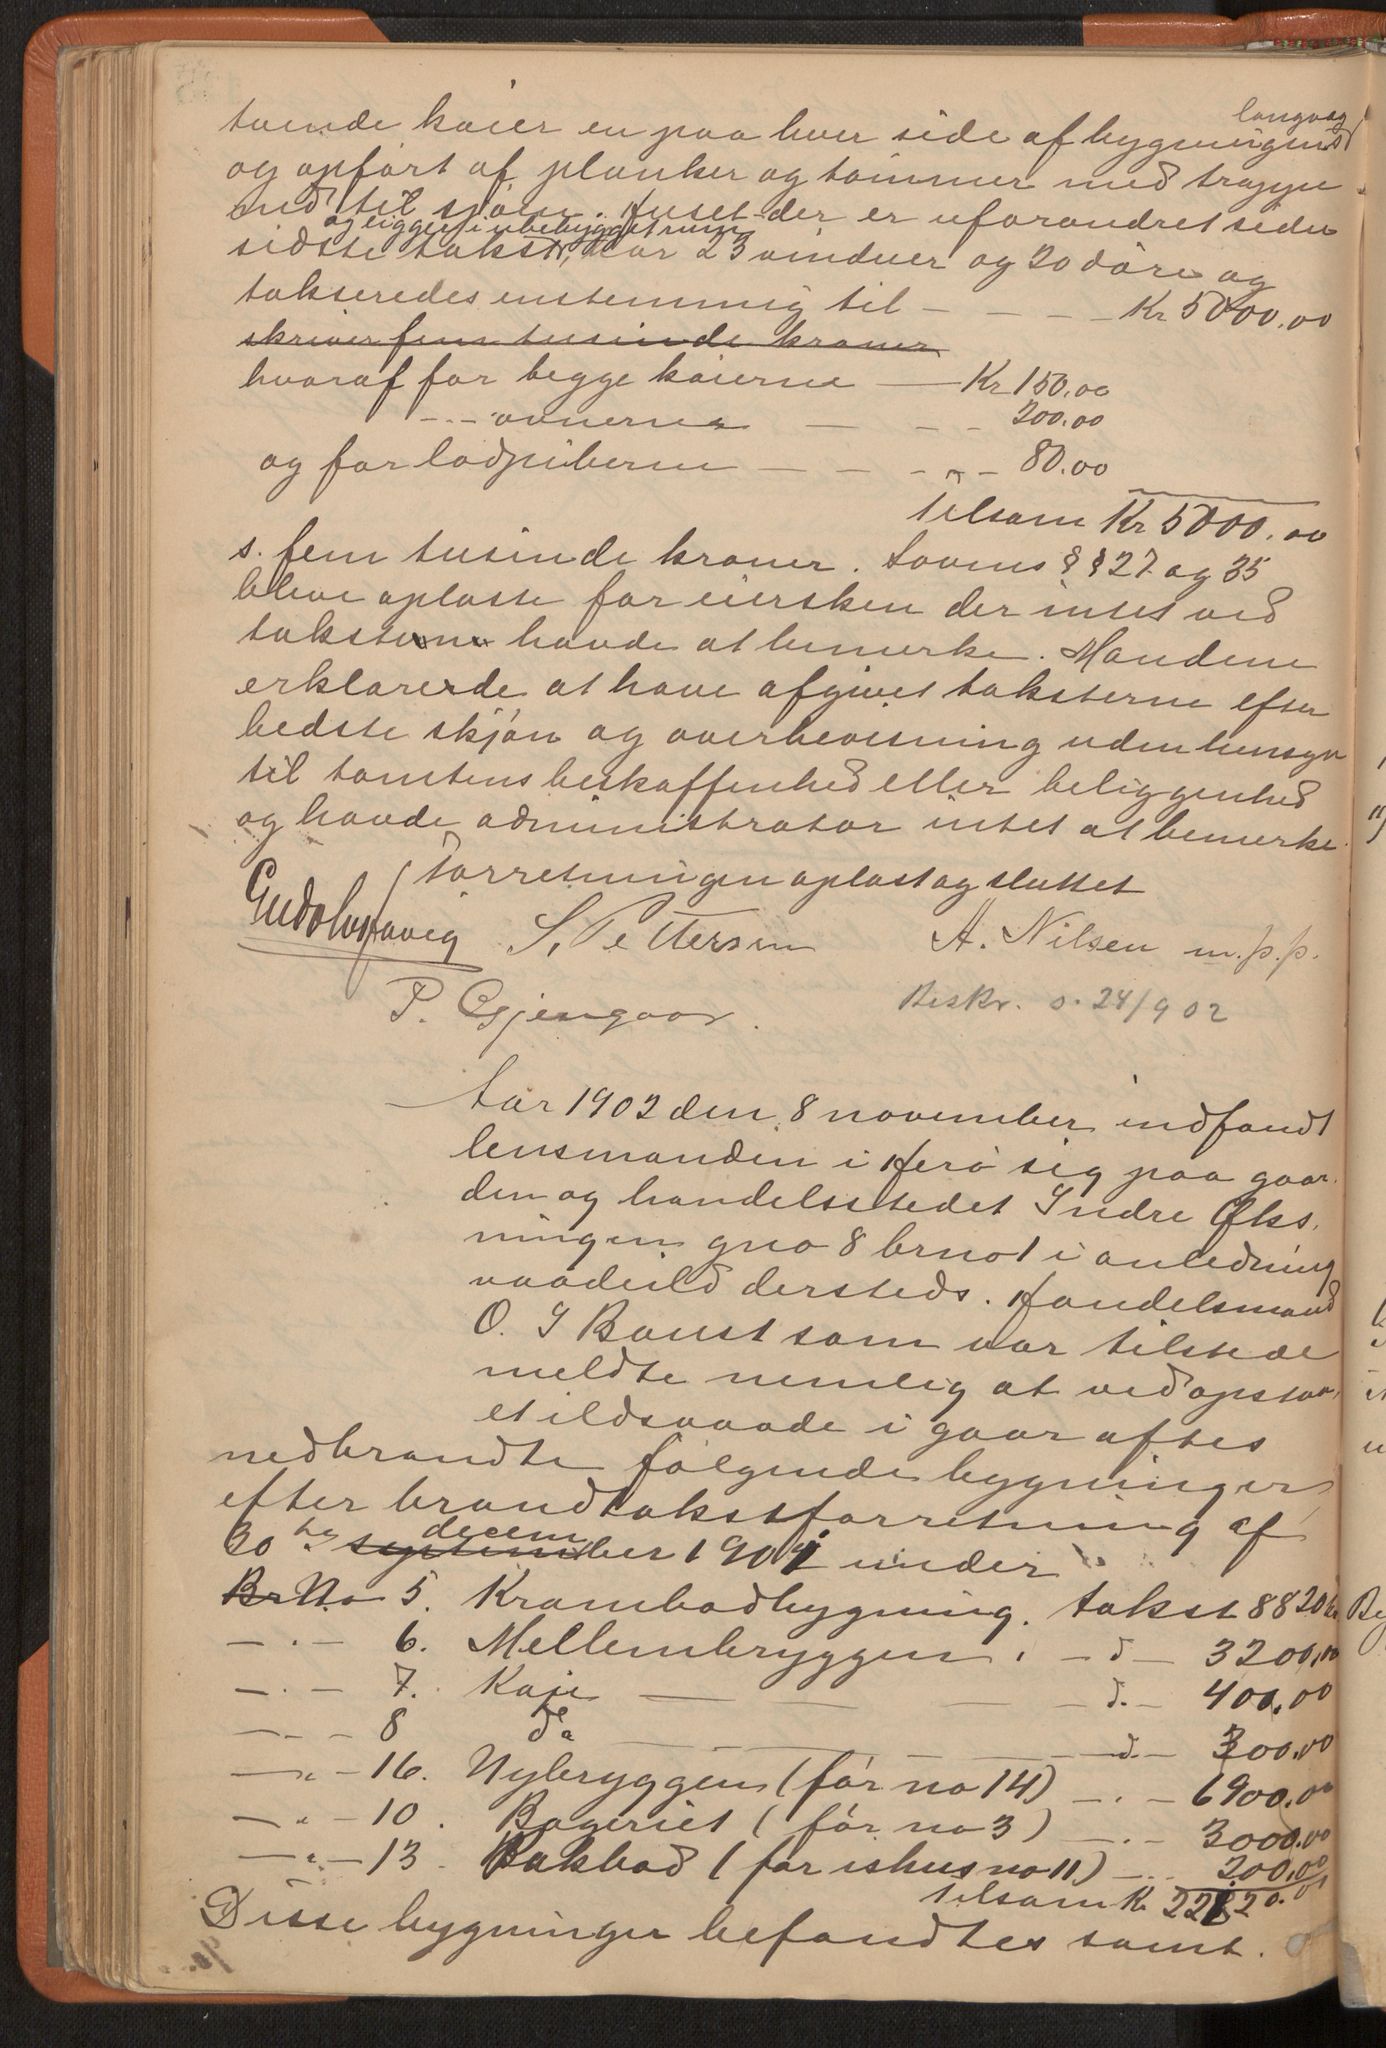 tvende kaier en paa hver side af bygningens langvæg
og opført af planker og tømmer med trappe
ned til sjøen. Huset der er uforandret siden
sidste takst, og ligger i ubebygget rum har 23 vinduer og 20 døre og
takseredes enstemmig til - - - - Kr 5000.00
skriver fem tusinde kroner
hvoraf for begge kaierne — Kr 150.00
- - - ovnerne — - - 200.00
og for lodpiberne — — - „ - 80.00
Tilsam Kr 5000.00
s. fem tusinde kroner. Lovens §§ 27 og 35
bleve oplæste for eiersken der intet ved
taksterne havde at bemerke. Mændene
erklærerde at have afgivet taksterne efter
bedste skjøn og overbevisning uden hensyn
til tomtens beskaffenhed eller beliggenhed
og havde administrator intet at bemerke.
Forretningen oplæst og sluttet
S. Pettersen A. Nilsen m.p.p.
P. Gjengaar.
Beskr. d. 24/9 02
Aar 1902 den 8 november indfandt
lensmanden i Herø sig paa gaar-
den og handelsstedet Indre Øks-
ningen gno 8 brno 1 i anledning
vaadeild dersteds. Handelsmand
O. I Baust som var tilstede
meldte nemlig at ved opstaa-
et ildsvaade i gaar aftes
nedbrandte følgende bygninger
efter brandtakstforretning af
30te september decem 1901 under
Br No 5. Krambodbygning. takst 8820 kr
— . — 6. Mellembryggen. — d — 3200,00
— . — 7. Kaje — — - d. — 400.00
— . - 8 do — — — d. — 300.00
— „ - 16. Nybryggen (før no 14) — . — 6900.00
— „ - 10. Bageriet (før no 3) — . — 3000.00
— „ — 13. Bakbod (før ishus no 11) — . . 200.00
tilsam Kr 22820.00
Disse bygninger befandtes samt.